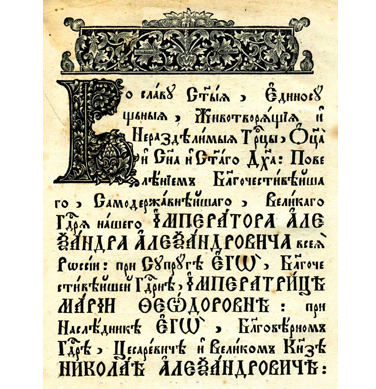 Во славу Ст҃ыѧ, Єдиносу
щьныѧ, Животворѧщіѧ и҆
Нераздѣлимыѧ Трⷪ҇цы, Ѻ҆ц҃а
и҆ Сн҃а и҆ Ст҃агѡ Дх҃а: Пове
лѣніемъ Благочестивѣйша
гѡ, Самодержавнѣйшагѡ, Великагѡ
Гдⷭ҇рѧ нашегѡ І҆МПЕРАТОРА А҆ЛЕ
ѮАНДРА А҆ЛЕѮАНДРОВИЧА всеѧ
Рѡссіи: при Сꙋпрꙋгѣ Є҆ГѠ̀, Благоче
стивѣйшей Гдⷭ҇рнѣ, І҆МПЕРАТРИЦѢ
МАРІИ ѲЕѠДОРОВНѢ: при
Наслѣдникѣ Є҆ГѠ̀, Благовѣрномъ
Гдⷭ҇рѣ, Цесаревичѣ и҆ Великомъ Кнѧзѣ
НИКОЛАѢ А҆ЛЕѮАНДРОВИЧѢ: